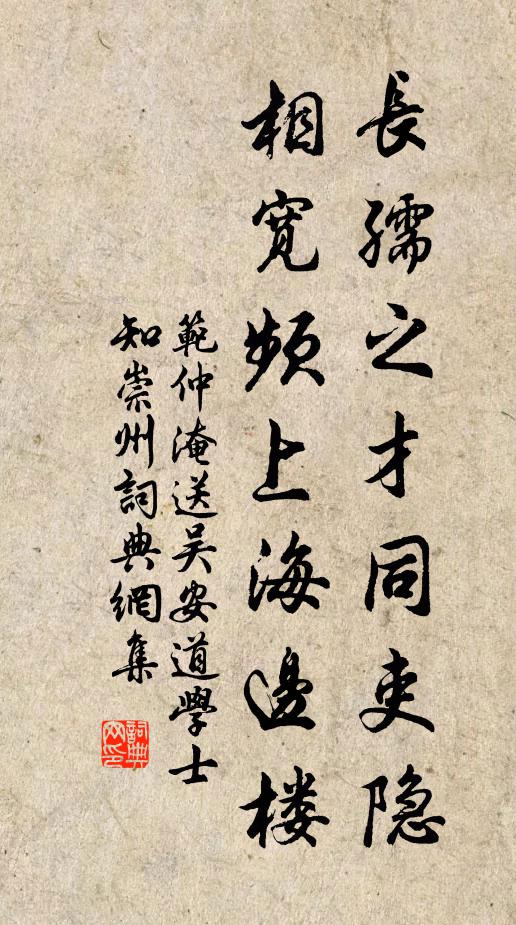 長孺之才同吏隐
相宽頻上海邊楼
範仲淹送吴安道學士
知崇州詞典網集
詞典
网印